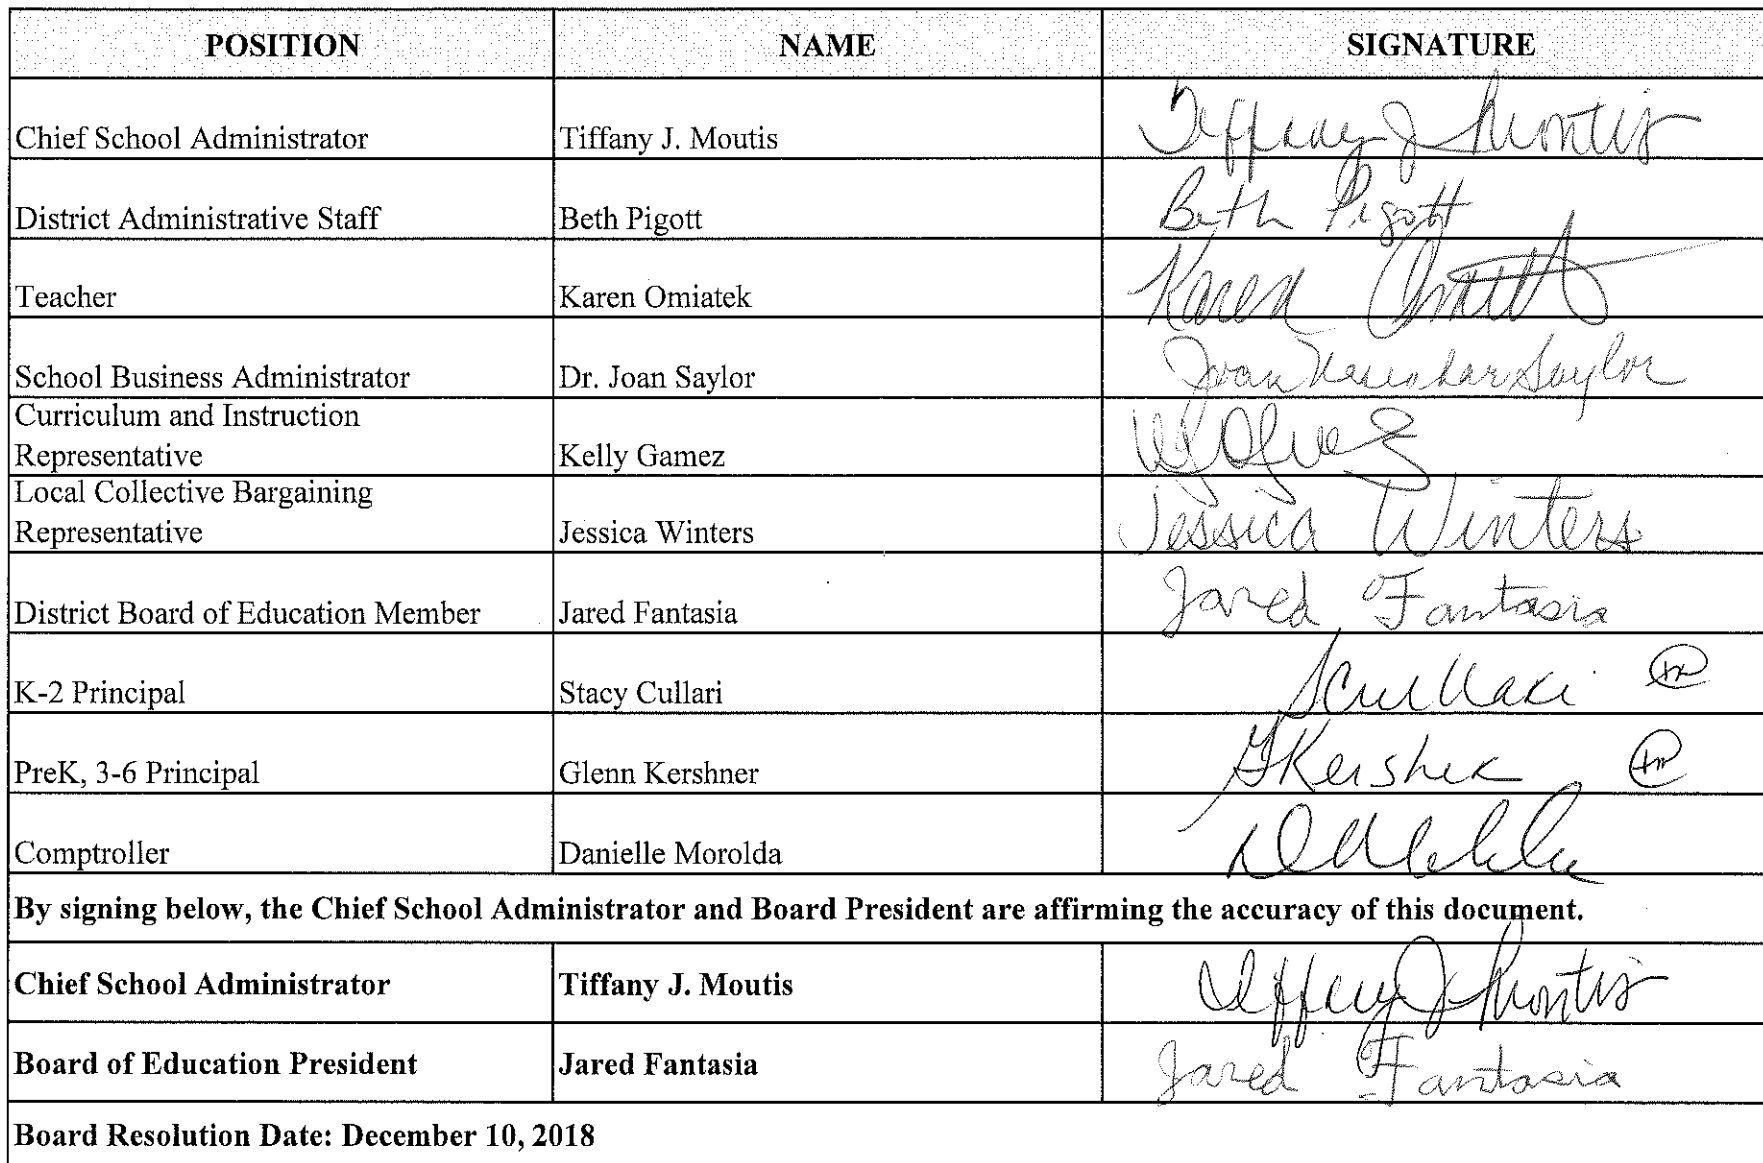 POSITION NAME SIGNATURE
Chief School Administrator Tiffany J. Moutis Tiffany J Moutis
District Administrative Staff Beth Pigott Beth Pigott
Teacher Karen Omiatek Karen
School Business Administrator Dr. Joan Saylor Joan Saylor
Curriculum and Instruction
Representative Kelly Gamez
Local Collective Bargaining
Representative Jessica Winters Jessica Winters
District Board of Education Member Jared Fantasia Jared Fantasia
K-2 Principal Stacy Cullari SCullari
PreK, 3-6 Principal Glenn Kershner GKershner
Comptroller Danielle Morolda
By signing below, the Chief School Administrator and Board President are affirming the accuracy of this document.
Chief School Administrator Tiffany J. Moutis Tiffany J Moutis
Board of Education President Jared Fantasia Jared Fantasia
Board Resolution Date: December 10, 2018